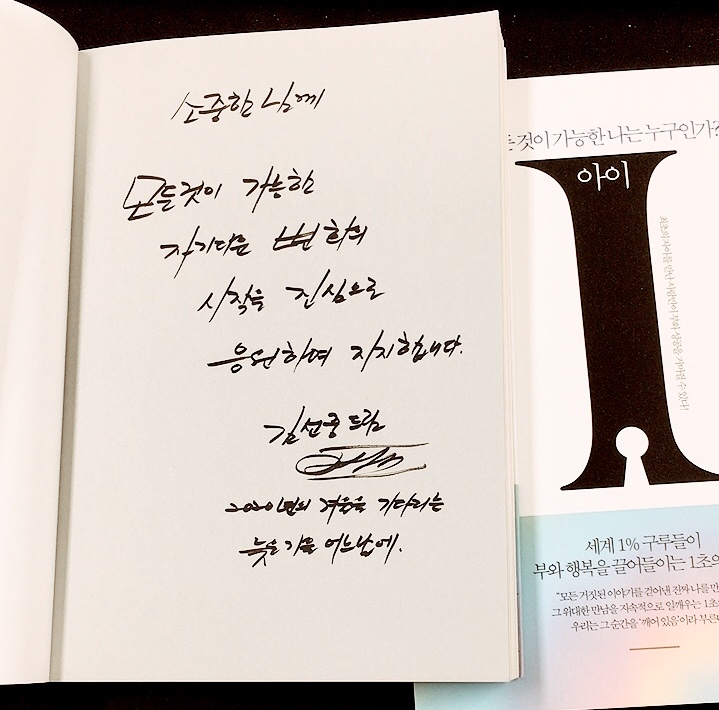 소중한 님께
모든것이 가능한
자기다운 변화의
시작을 진심으로
응원하며 지지합니다.
김선중 드림
2020년의 겨울을 기다리는
늦은 가을 어느날에.
든 것이 가능한 나는 누구인가?
아이
최초의 자아를 만난 사람만이 부와 성공을 거머쥘 수 있다!
세계 1% 구루들이
부와 행복을 끌어들이는 1초의
“모든 거짓된 이야기를 걷어낸 진짜 나를 만
그 위대한 만남을 지속적으로 일깨우는 1초
우리는 그 순간을 ‘깨어 있음’이라 부른